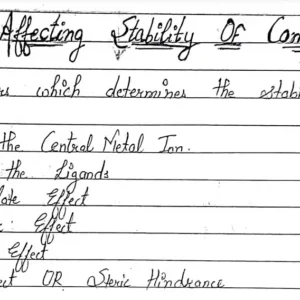 Affecting Stability Of Com
rs which determines the stab
the Central Metal Ion.
the Ligands
late Effect
c Effect
Effect
ect OR Steric Hindrance